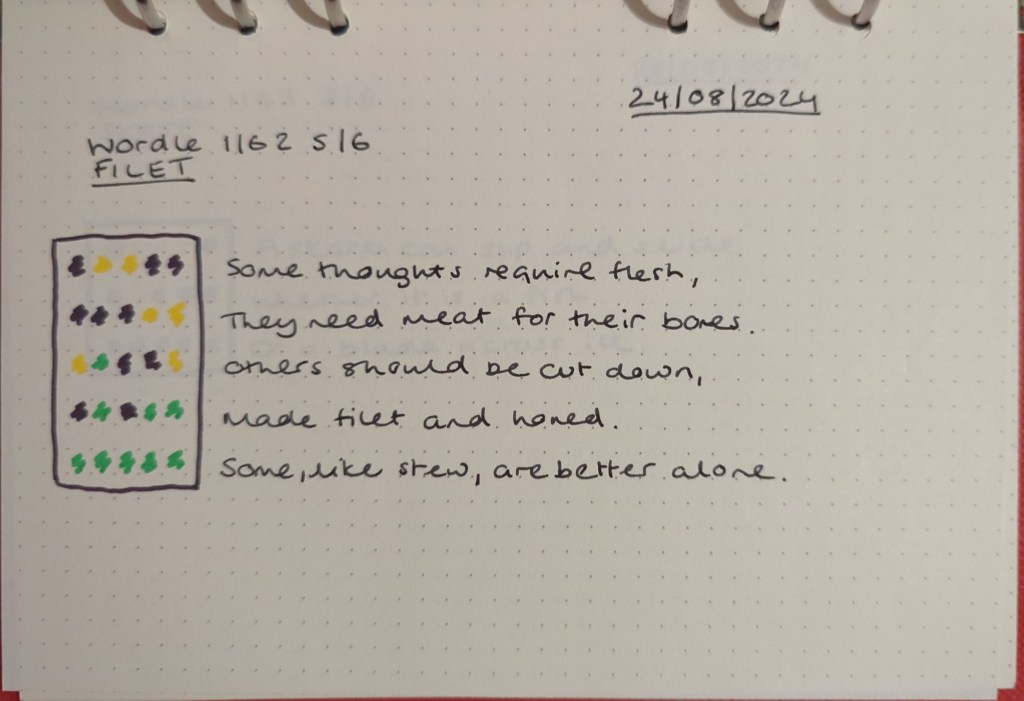 24/08/2024
Wordle 1162 5/6
FILET
Some thoughts require flesh,
They need meat for their bones.
Others should be cut down,
Made filet and honed.
Some, like stew, are better alone.